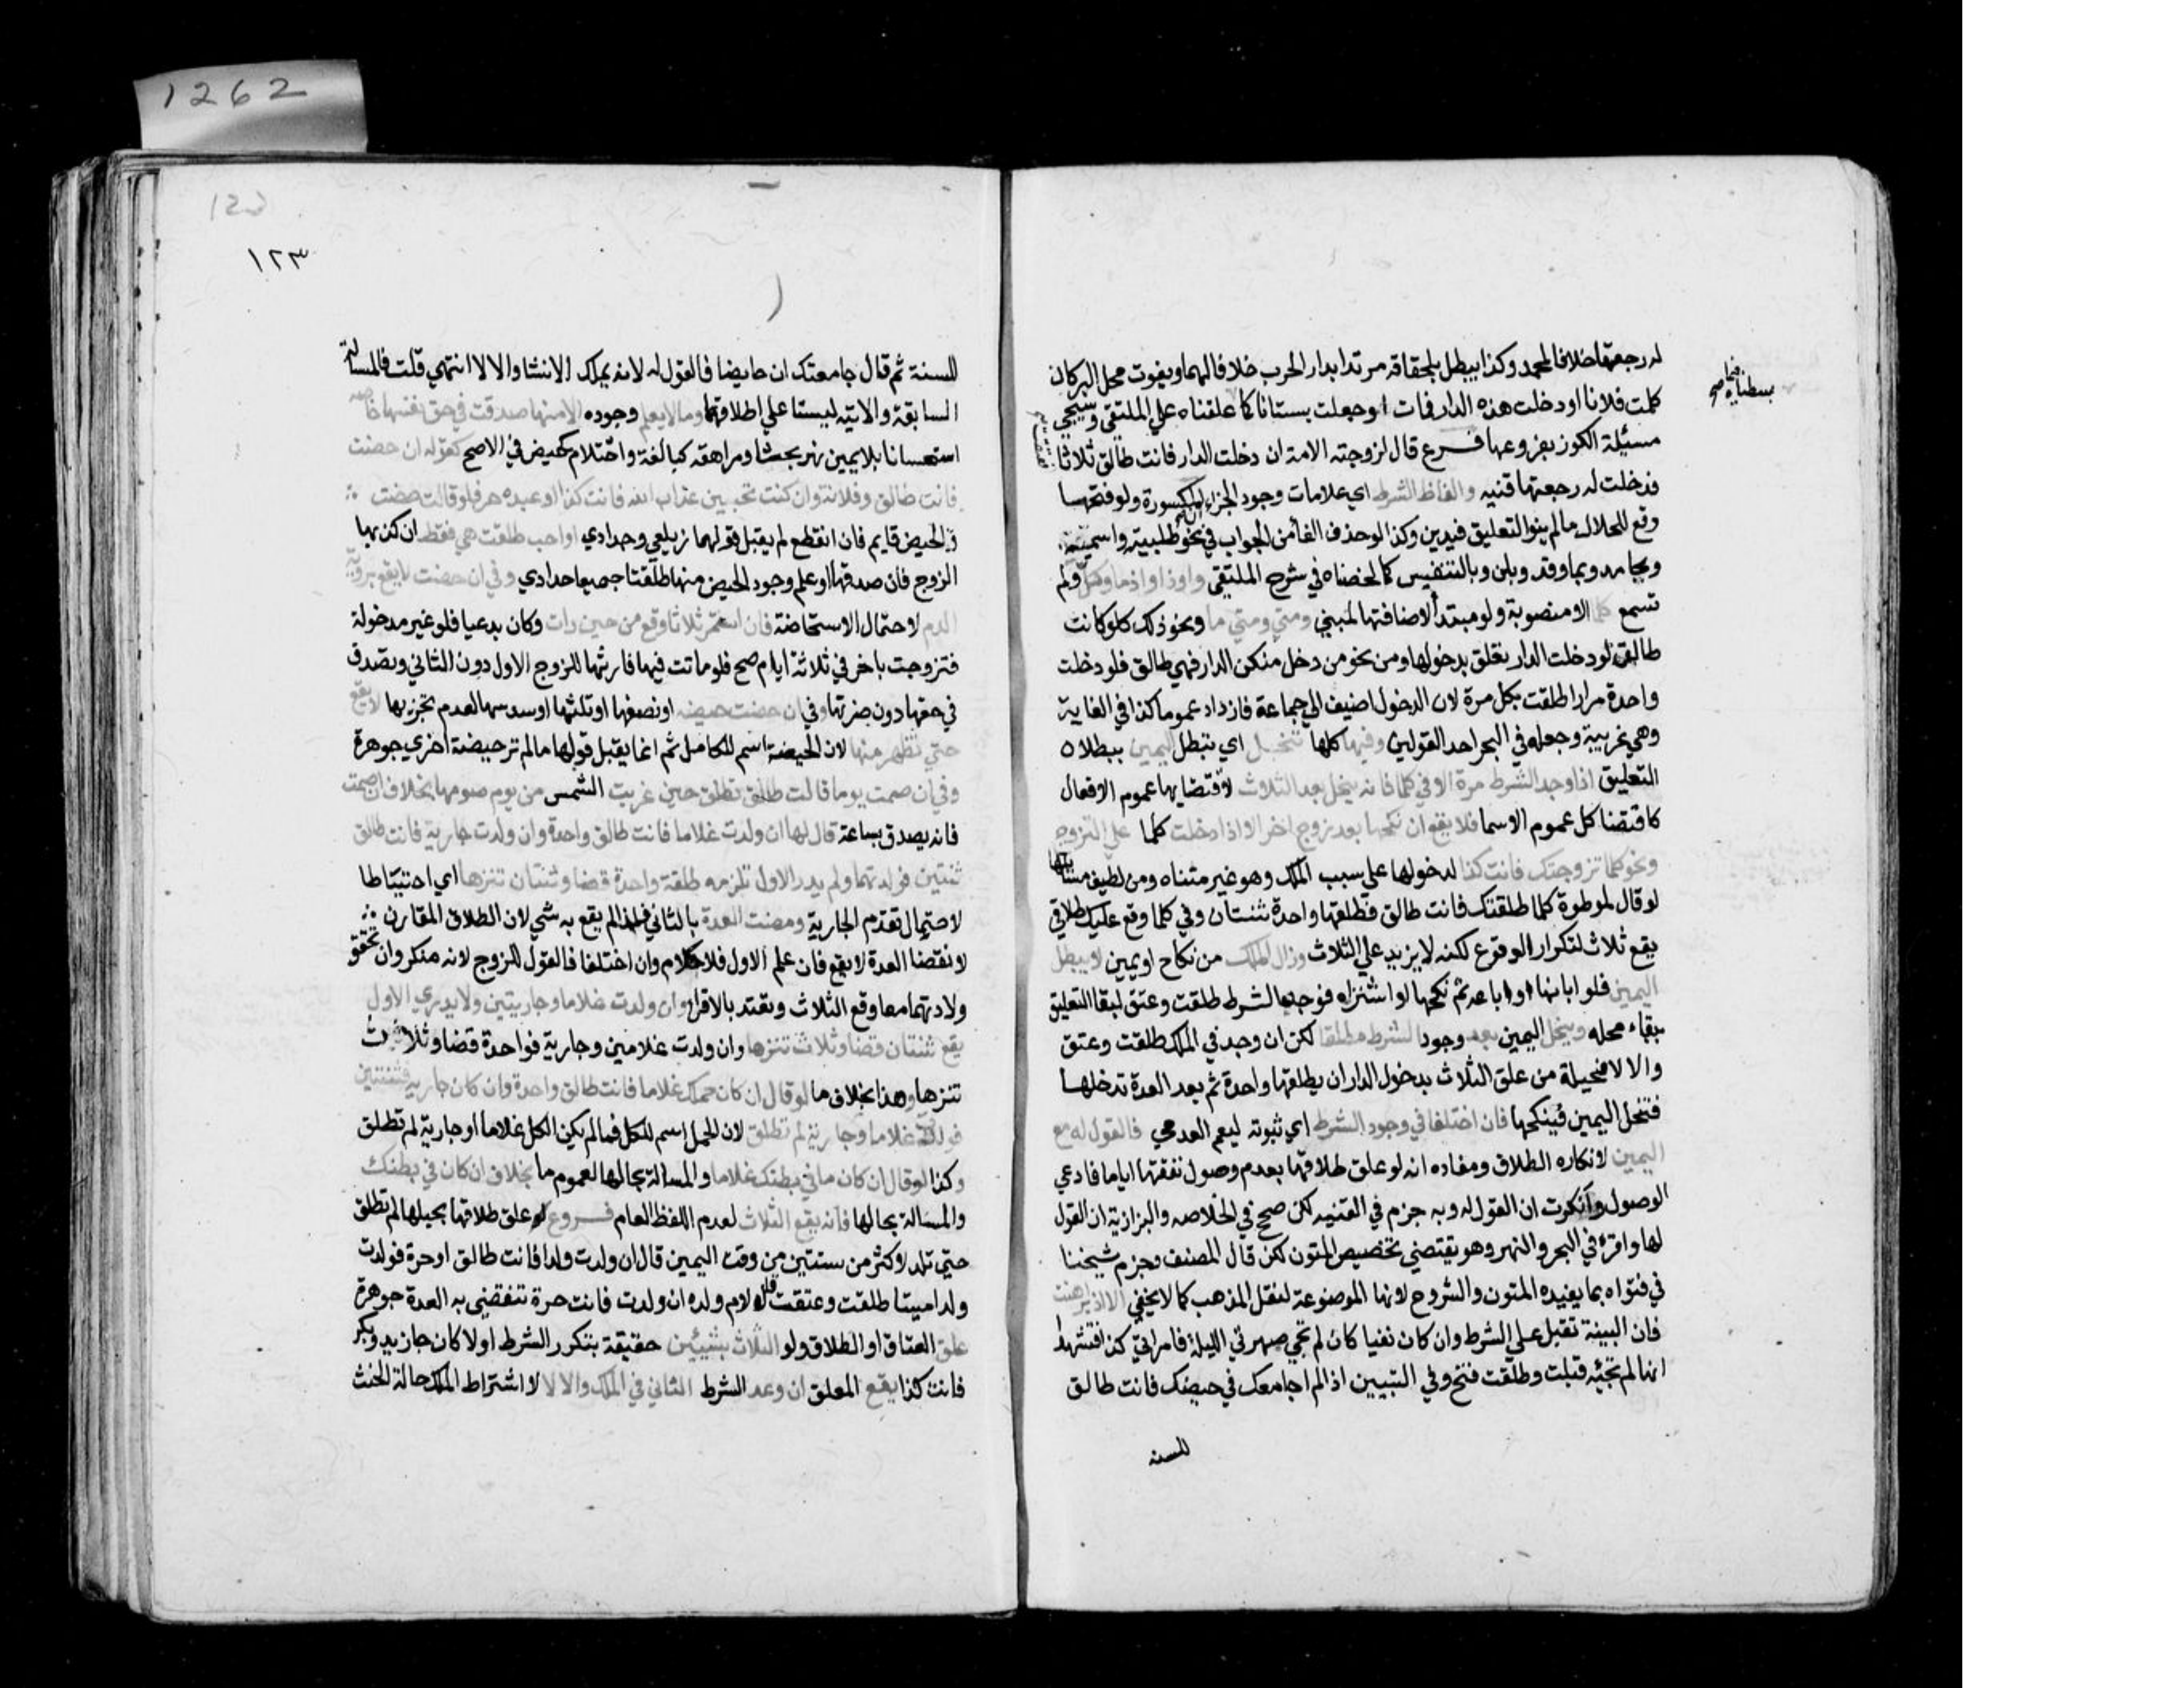 1262
له رجعتها خلافا لمحمد وكذا يبطل بلحقاقه مرتدا بدار الحرب خلافا لهما وبفوت محل البر كان
كلمت فلانا او دخلت هذه الدار فمات او جعلت بستانا كما علقناه علي الملتقي وسيجي
مسئلة الكوز بفروعها فرع قال لزوجته الامة ان دخلت الدار فانت طالق ثلاثا
فدخلت له رجعتها قنيه والفاظ الشرط اي علامات وجود الجزاء ان المكسورة ولو فتحها
وقع للحال مالم ينو التعليق فيدين وكذا لو حذف الفا من الجواب في نحو طلبية واسمية
وبجامد وبما وقد وبلن وبالتنفيس كما لخصناه في شرح الملتقي واوذا واذما وكل ولم
تسمع كلما الا منصوبة ولو مبتدأ لاضافتها لمبني ومتي ومتي ما ونحو ذلك كلو كانت
طالق لو دخلت الدار تعلق بدخولها ومن نحو من دخل منكن الدار فهي طالق فلو دخلت
واحدة مرارا طلقت بكل مرة لان الدخول اضيف الي جماعة فازداد عموما كذا في الغاية
وهي غريبة وجعله في البحر احد القولين وفيها كلها تنحل اي تبطل اليمين ببطلان
التعليق اذا وجد الشرط مرة الا في كلما فانه ينحل بعد الثلاث لاقتضايها عموم الافعال
كاقتضا كل عموم الاسما فلا يقع ان نكحها بعد زوج اخر الا اذا دخلت كلما علي التزوج
ونحو كلما تزوجتك فانت كذا لدخولها علي سبب الملك وهو غير متناه ومن لطيف مسائلها
لو قال لموطوة كلما طلقتك فانت طالق فطلقها واحدة ثنتان وفي كلما وقع عليك طلاقي
يقع ثلاث لتكرار الوقوع لكنه لا يزيد علي الثلاث وزال الملك من نكاح او يمين لا يبطل
اليمين فلو ابانها او اباعه ثم نكحها او اشتراه فوجد الشرط طلقت وعتق لبقا التعليق
ببقاء محله وينحل اليمين بعد وجود الشرط مطلقا لكن ان وجد في الملك طلقت وعتق
والا لا فحيلة من علق الثلاث بدخول الدار ان يطلقها واحدة ثم بعد العدة تدخلها
فتنحل اليمين فينكحها فان اختلفا في وجود الشرط اي ثبوته ليعم العدمي فالقول له مع
اليمين لانكاره الطلاق ومفاده انه لو علق طلاقها بعدم وصول نفقتها اياما فادعي
الوصول وانكرت ان القول له وبه جزم في القنيه لكن صحح في الخلاصه والبزازية ان القول
لها واقره في البحر والنهر وهو يقتضي تخصيص المتون لكن قال المصنف وجزم شيخنا
في فتواه بما يفيده المتون والشروح لانها الموضوعة لنقل المذهب كما لا يخفي الا اذا برهنت
فان البينة تقبل علي الشرط وان كان نفيا كان لم تجي صهرتي الليلة فامراتي كذا فشهدا
انها لم تجئه قبلت وطلقت فتح وفي التبيين اذا لم اجامعك في حيضك فانت طالق
للسنه
١٢٣
للسنة ثم قال جامعتك ان حايضا فالقول له لانه يملك الانشا والا لا انتهي قلت فالمسالة
السابقة والاتيه ليستا علي اطلاقهما وما لا يعلم وجوده الا منها صدقت في حق نفسها خاصه
استحسانا بلا يمين نهر بحثا ومراهقه كبالغة واحتلام كحيض في الاصح كقوله ان حضت
فانت طالق وفلانة وان كنت تحبين عذاب الله فانت كذا او عبده حر فلو قالت حضت
والحيض قايم فان انقطع لم يقبل قولهما زيلعي وحدادي او احب طلقت هي فقط ان كذبها
الزوج فان صدقها او علم وجود الحيض منها طلقتا جميعا حدادي وفي ان حضت لا يقع برؤية
الدم لاحتمال الاستحاضة فان استمر ثلاثا وقع من حين رات وكان بدعيا فلو غير مدخولة
فتزوجت باخر في ثلاثة ايام صح فلو ماتت فيها فارثها للزوج الاول دون الثاني وتصدق
في حقها دون ضرتها وفي ان حضت حيضه او نصفها او ثلثها او سدسها لعدم تجزيها لا يقع
حتي تطهر منها لان الحيضة اسم للكامل ثم انما يقبل قولها مالم تر حيضة اخري جوهرة
وفي ان صمت يوما فانت طالق تطلق حين غربت الشمس من يوم صومها بخلاف ان صمت
فانه يصدق بساعة قال لها ان ولدت غلاما فانت طالق واحدة وان ولدت جارية فانت طالق
ثنتين فولدتهما ولم يدر الاول تلزمه طلقة واحدة قضا وثنتان تنزها اي احتياطا
لاحتمال تقدم الجارية ومضت العدة بالثاني فلذا لم يقع به شي لان الطلاق المقارن
لانقضا العدة لا يقع فان علم الاول فلا كلام وان اختلفا فالقول للزوج لانه منكر وان تحقق
ولادتهما معا وقع الثلاث وتعتد بالاقرا وان ولدت غلاما وجاريتين ولا يدري الاول
يقع ثنتان قضا وثلاث تنزها وان ولدت غلامين وجارية فواحدة قضا وثلاث
تنزها وهذا بخلاف ما لو قال ان كان حملك غلاما فانت طالق واحدة وان كان جارية فثنتين
فولدت غلاما وجارية لم تطلق لان الحمل اسم للكل فما لم يكن الكل غلاما او جارية لم تطلق
وكذا لو قال ان كان ما في بطنك غلاما والمسالة بحالها لعموم ما بخلاف ان كان في بطنك
والمسالة بحالها فانه يقع الثلاث لعدم اللفظ العام فروع لو علق طلاقها بحبلها لم تطلق
حتي تلد لاكثر من سنتين من وقت اليمين قال ان ولدت ولدا فانت طالق او حرة فولدت
ولدا ميتا طلقت وعتقت قال لام ولده ان ولدت فانت حرة تنقضي به العدة جوهرة
علق العتاق او الطلاق ولو الثلاث بشيئين حقيقة بتكرر الشرط اولا كان جا زيد وبكر
فانت كذا يقع المعلق ان وجد الشرط الثاني في الملك والا لا لاشتراط الملك حالة الحنث